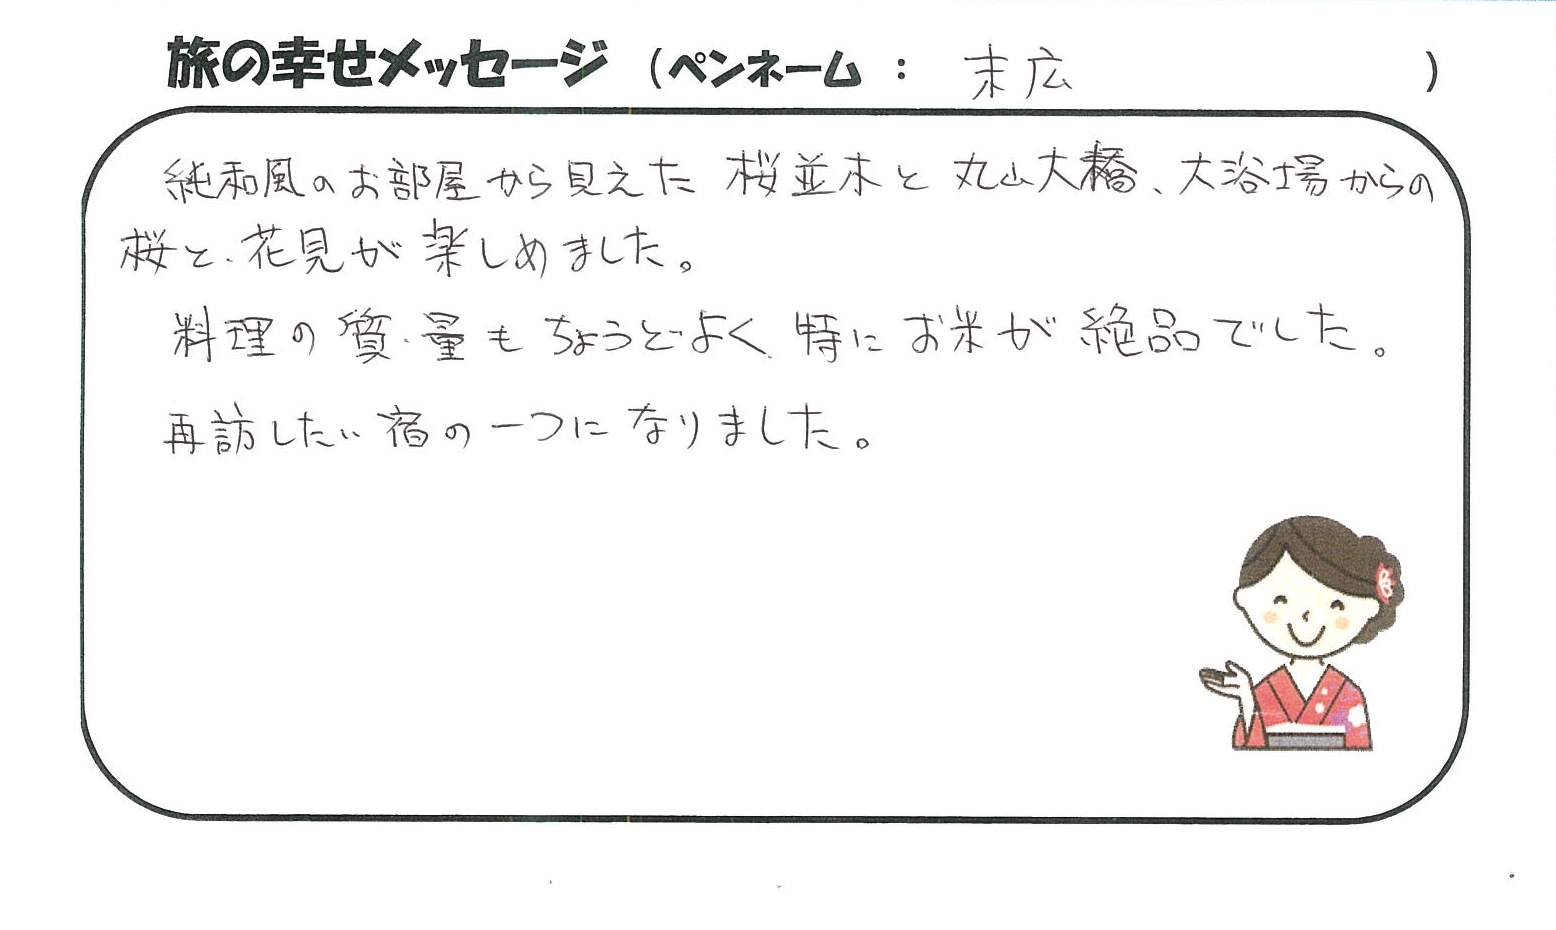 旅の幸せメッセージ （ペンネーム ： 末広 ）
純和風のお部屋から見えた 桜並木と 丸山大橋、大浴場からの
桜と、花見が楽しめました。
料理の質・量もちょうどよく、特にお米が絶品でした。
再訪したい宿の一つになりました。